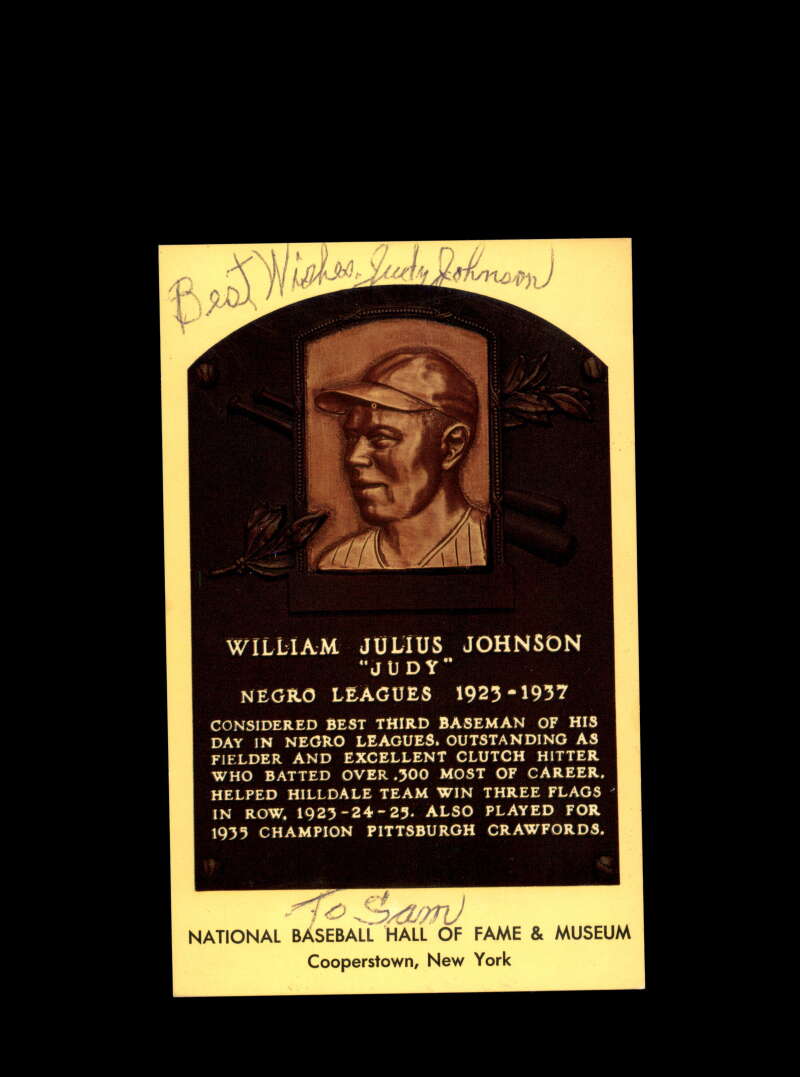 Best Wishes. Judy Johnson
WILLIAM JULIUS JOHNSON
"JUDY"
NEGRO LEAGUES 1923-1937
CONSIDERED BEST THIRD BASEMAN OF HIS
DAY IN NEGRO LEAGUES. OUTSTANDING AS
FIELDER AND EXCELLENT CLUTCH HITTER
WHO BATTED OVER .300 MOST OF CAREER.
HELPED HILLDALE TEAM WIN THREE FLAGS
IN ROW, 1923-24-25. ALSO PLAYED FOR
1935 CHAMPION PITTSBURGH CRAWFORDS.
To Sam
NATIONAL BASEBALL HALL OF FAME & MUSEUM
Cooperstown, New York